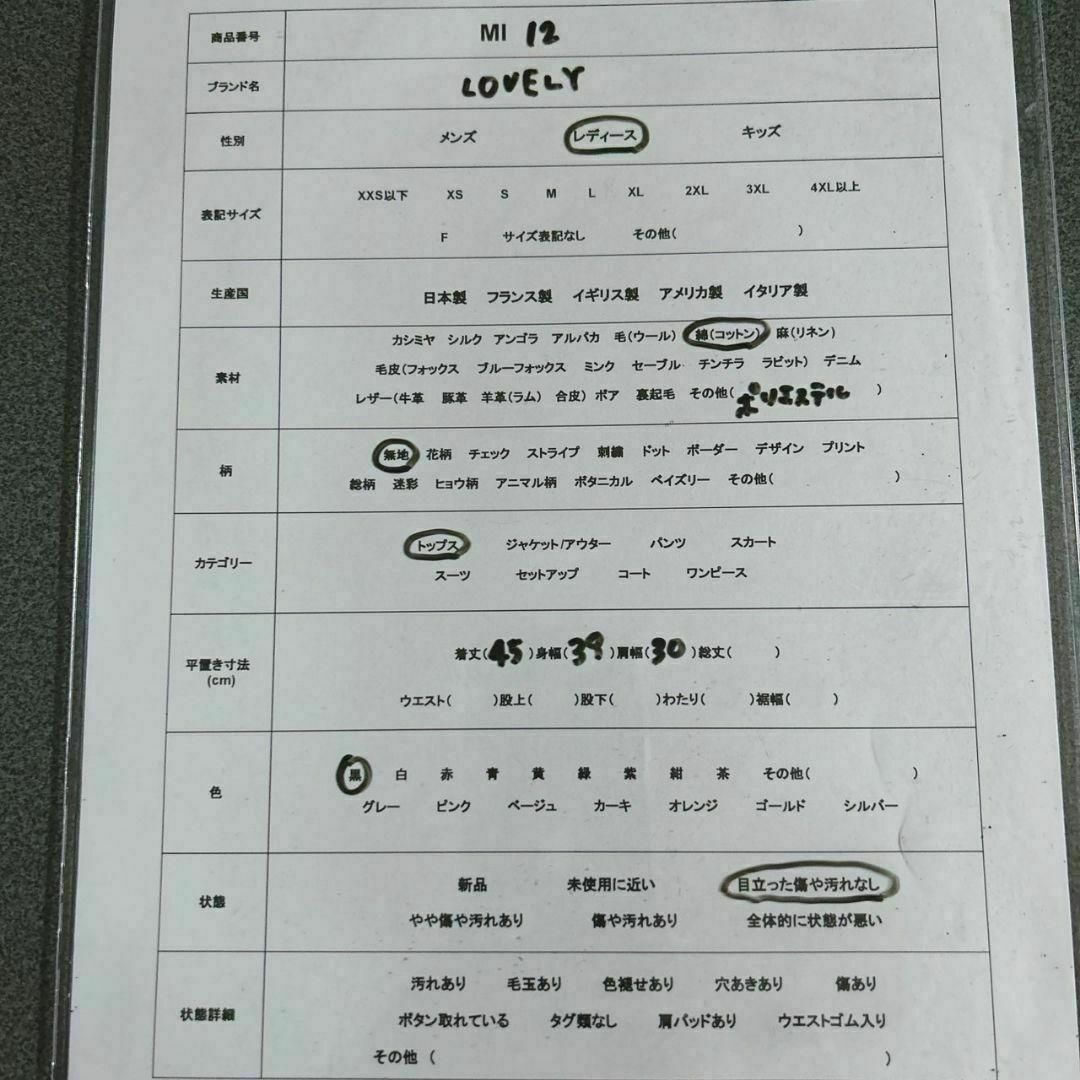 商品番号 MI 12
ブランド名 LOVELY
性別 メンズ レディース キッズ
表記サイズ
XXS以下 XS S M L XL 2XL 3XL 4XL以上
F サイズ表記なし その他( )
生産国 日本製 フランス製 イギリス製 アメリカ製 イタリア製
素材
カシミヤ シルク アンゴラ アルパカ 毛(ウール) 綿(コットン) 麻(リネン)
毛皮(フォックス ブルーフォックス ミンク セーブル チンチラ ラビット) デニム
レザー(牛革 豚革 羊革(ラム) 合皮) ボア 裏起毛 その他(ポリエステル )
柄
無地 花柄 チェック ストライプ 刺繍 ドット ボーダー デザイン プリント
総柄 迷彩 ヒョウ柄 アニマル柄 ボタニカル ペイズリー その他( )
カテゴリー
トップス ジャケット/アウター パンツ スカート
スーツ セットアップ コート ワンピース
平置き寸法
(cm)
着丈(45)身幅(39)肩幅(30)総丈( )
ウエスト( )股上( )股下( )わたり( )裾幅( )
色
黒 白 赤 青 黄 緑 紫 紺 茶 その他( )
グレー ピンク ベージュ カーキ オレンジ ゴールド シルバー
状態
新品 未使用に近い 目立った傷や汚れなし
やや傷や汚れあり 傷や汚れあり 全体的に状態が悪い
状態詳細
汚れあり 毛玉あり 色褪せあり 穴あきあり 傷あり
ボタン取れている タグ類なし 肩パッドあり ウエストゴム入り
その他 ( )